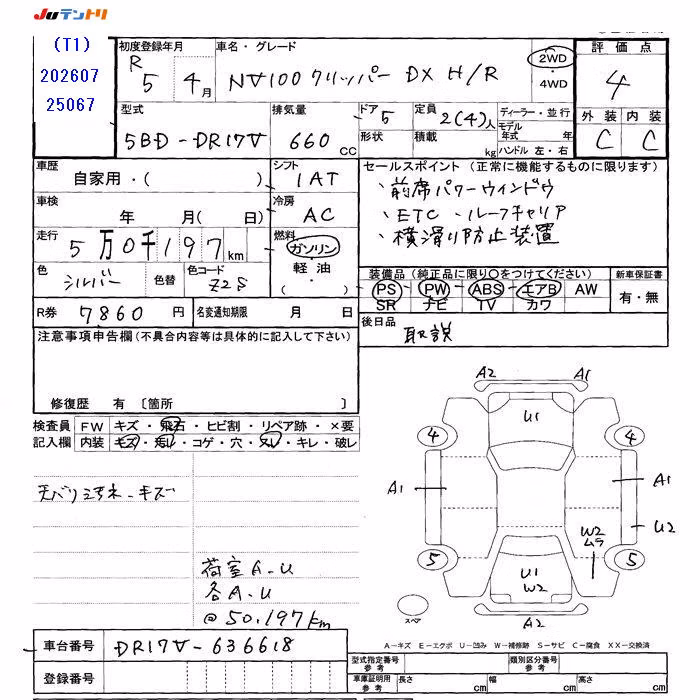 Juテントリ
(T1)
202607
25067
初度登録年月
R 5年 4月
車名・グレード
NV100クリッパー DX H/R
2WD
・
4WD
評価点
4
外装 内装
C C
型式
5BD-DR17V
排気量
660 CC
ドア
5
形状
定員
2(4)人
積載
kg
ディーラー・並行
モデル年式 年
ハンドル 左・右
車歴
自家用・( )
シフト
IAT
車検
年 月( 日)
冷房
AC
走行
5万0千197km
燃料
ガソリン
軽油
・( )
色
シルバー
色替
色コード
Z2S
R券 7860円
名変通知期限 月 日
セールスポイント (正常に機能するものに限ります)
・前席パワーウィンドウ
・ETC ・ルーフキャリア
・横滑り防止装置
装備品(純正品に限り○をつけてください)
PS PW ABS エアB AW
SR ナビ TV カワ
新車保証書
有・無
後日品
取説
注意事項申告欄(不具合内容等は具体的に記入して下さい)
修復歴 有 〔箇所 〕
検査員 FW キズ・飛石・ヒビ割・リペア跡・×要
記入欄 内装 キズ・汚れ・コゲ・穴・スレ・キレ・破レ
天バリ キズ
荷室A.U
各A.U
@50,197km
A2
A1
U1
4
4
A1
A1
U2
W2
ムラ
5
5
U1
W2
A2
スペア
A-キズ E-エクボ U-凹み W-補修跡 S-サビ C-腐食 XX-交換済
車台番号 DR17V-636618
登録番号
型式指定番号
参考
類別区分番号
参考
車庫証明用
参考
長さ cm 幅 cm 高さ cm